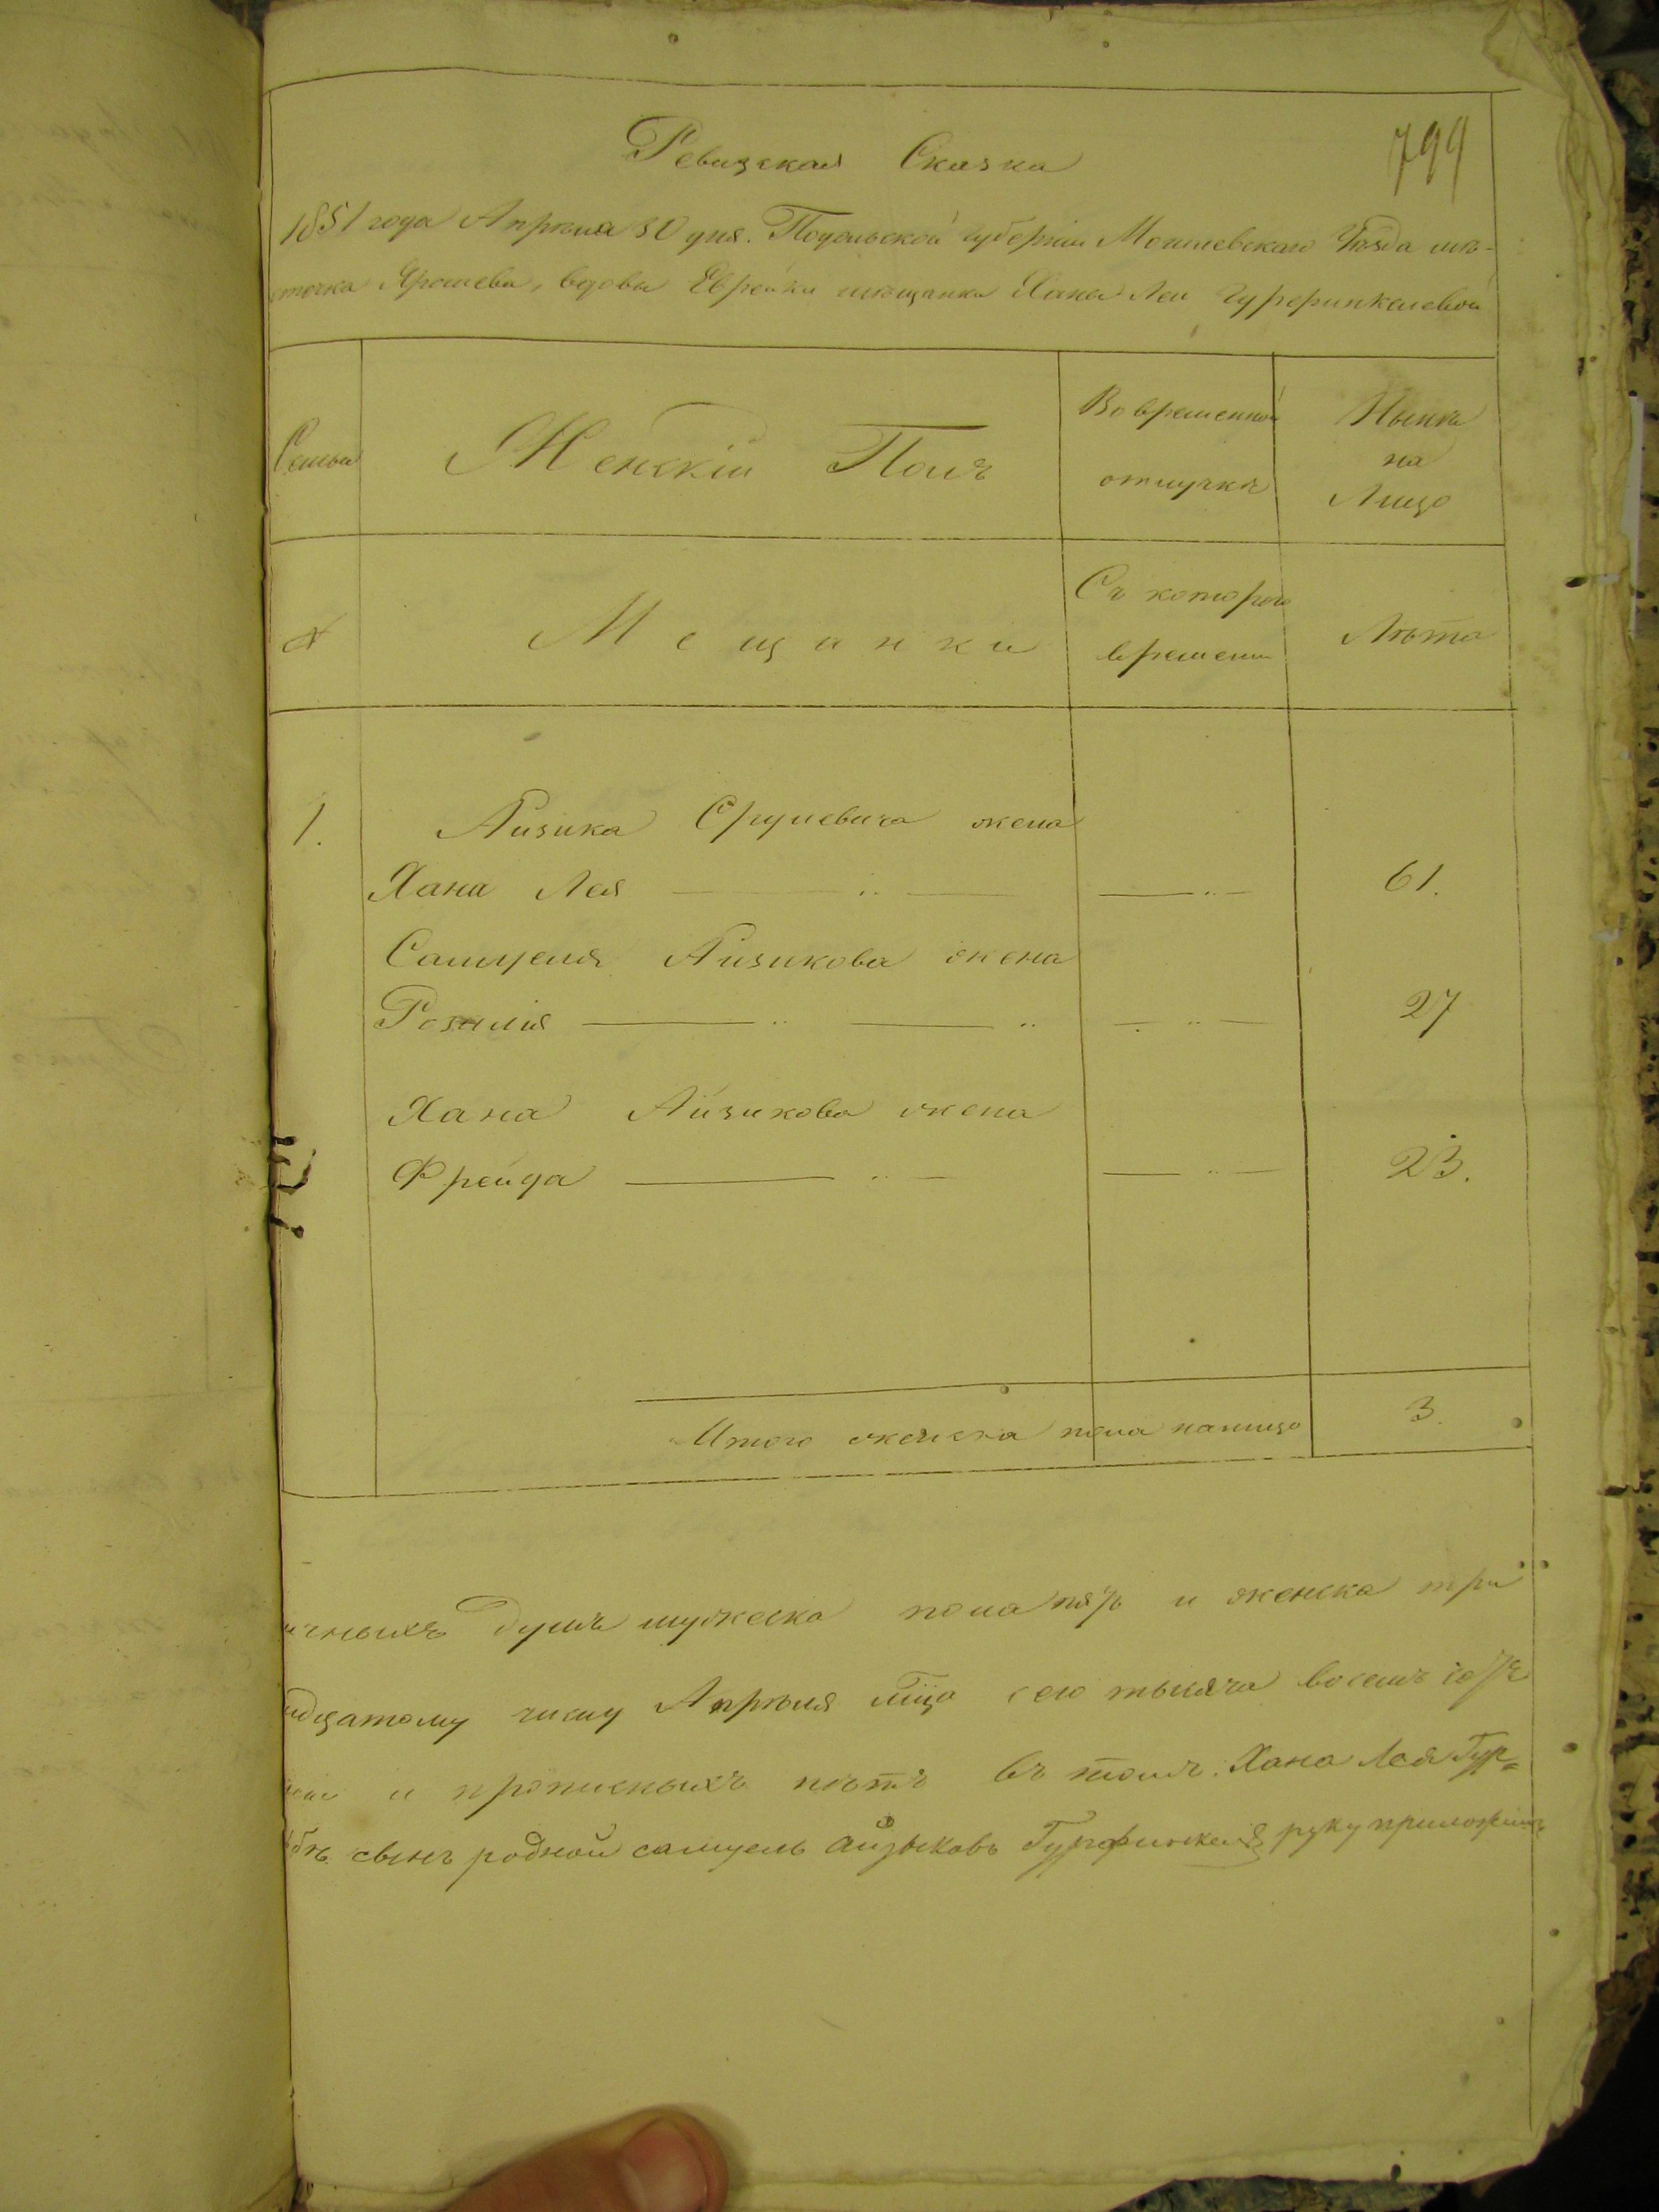 799
Ревизская Сказка
1851 года Апреля 30 дня. Подольской Губернiи Могилевского Уѣзда мѣ-
сточка Ярошева, вдовы Еврейки мѣщанки Ханы Леи Гурфинкелевой
Семьи
Женскiй Полъ
Во временной
отлучкѣ
Нынѣ
на
Лицо
Мещанки
Съ которого
времени
Лѣта
1.
Айзика Сруневича жена
Хана Лея
61.
Самуеля Айзикова жена
Розалiя
27
Хана Айзикова жена
Фрейда
23.
Итого женска пола налицо
3.
душъ мужеска пола пять и женска три
идцатому числу Апрѣля сего тысяча восемъ сотъ
и прописныхъ нѣтъ въ томъ. Хана Лея Гур-
сынъ родной самуель айзыковъ Гурфинкель руку приложилъ